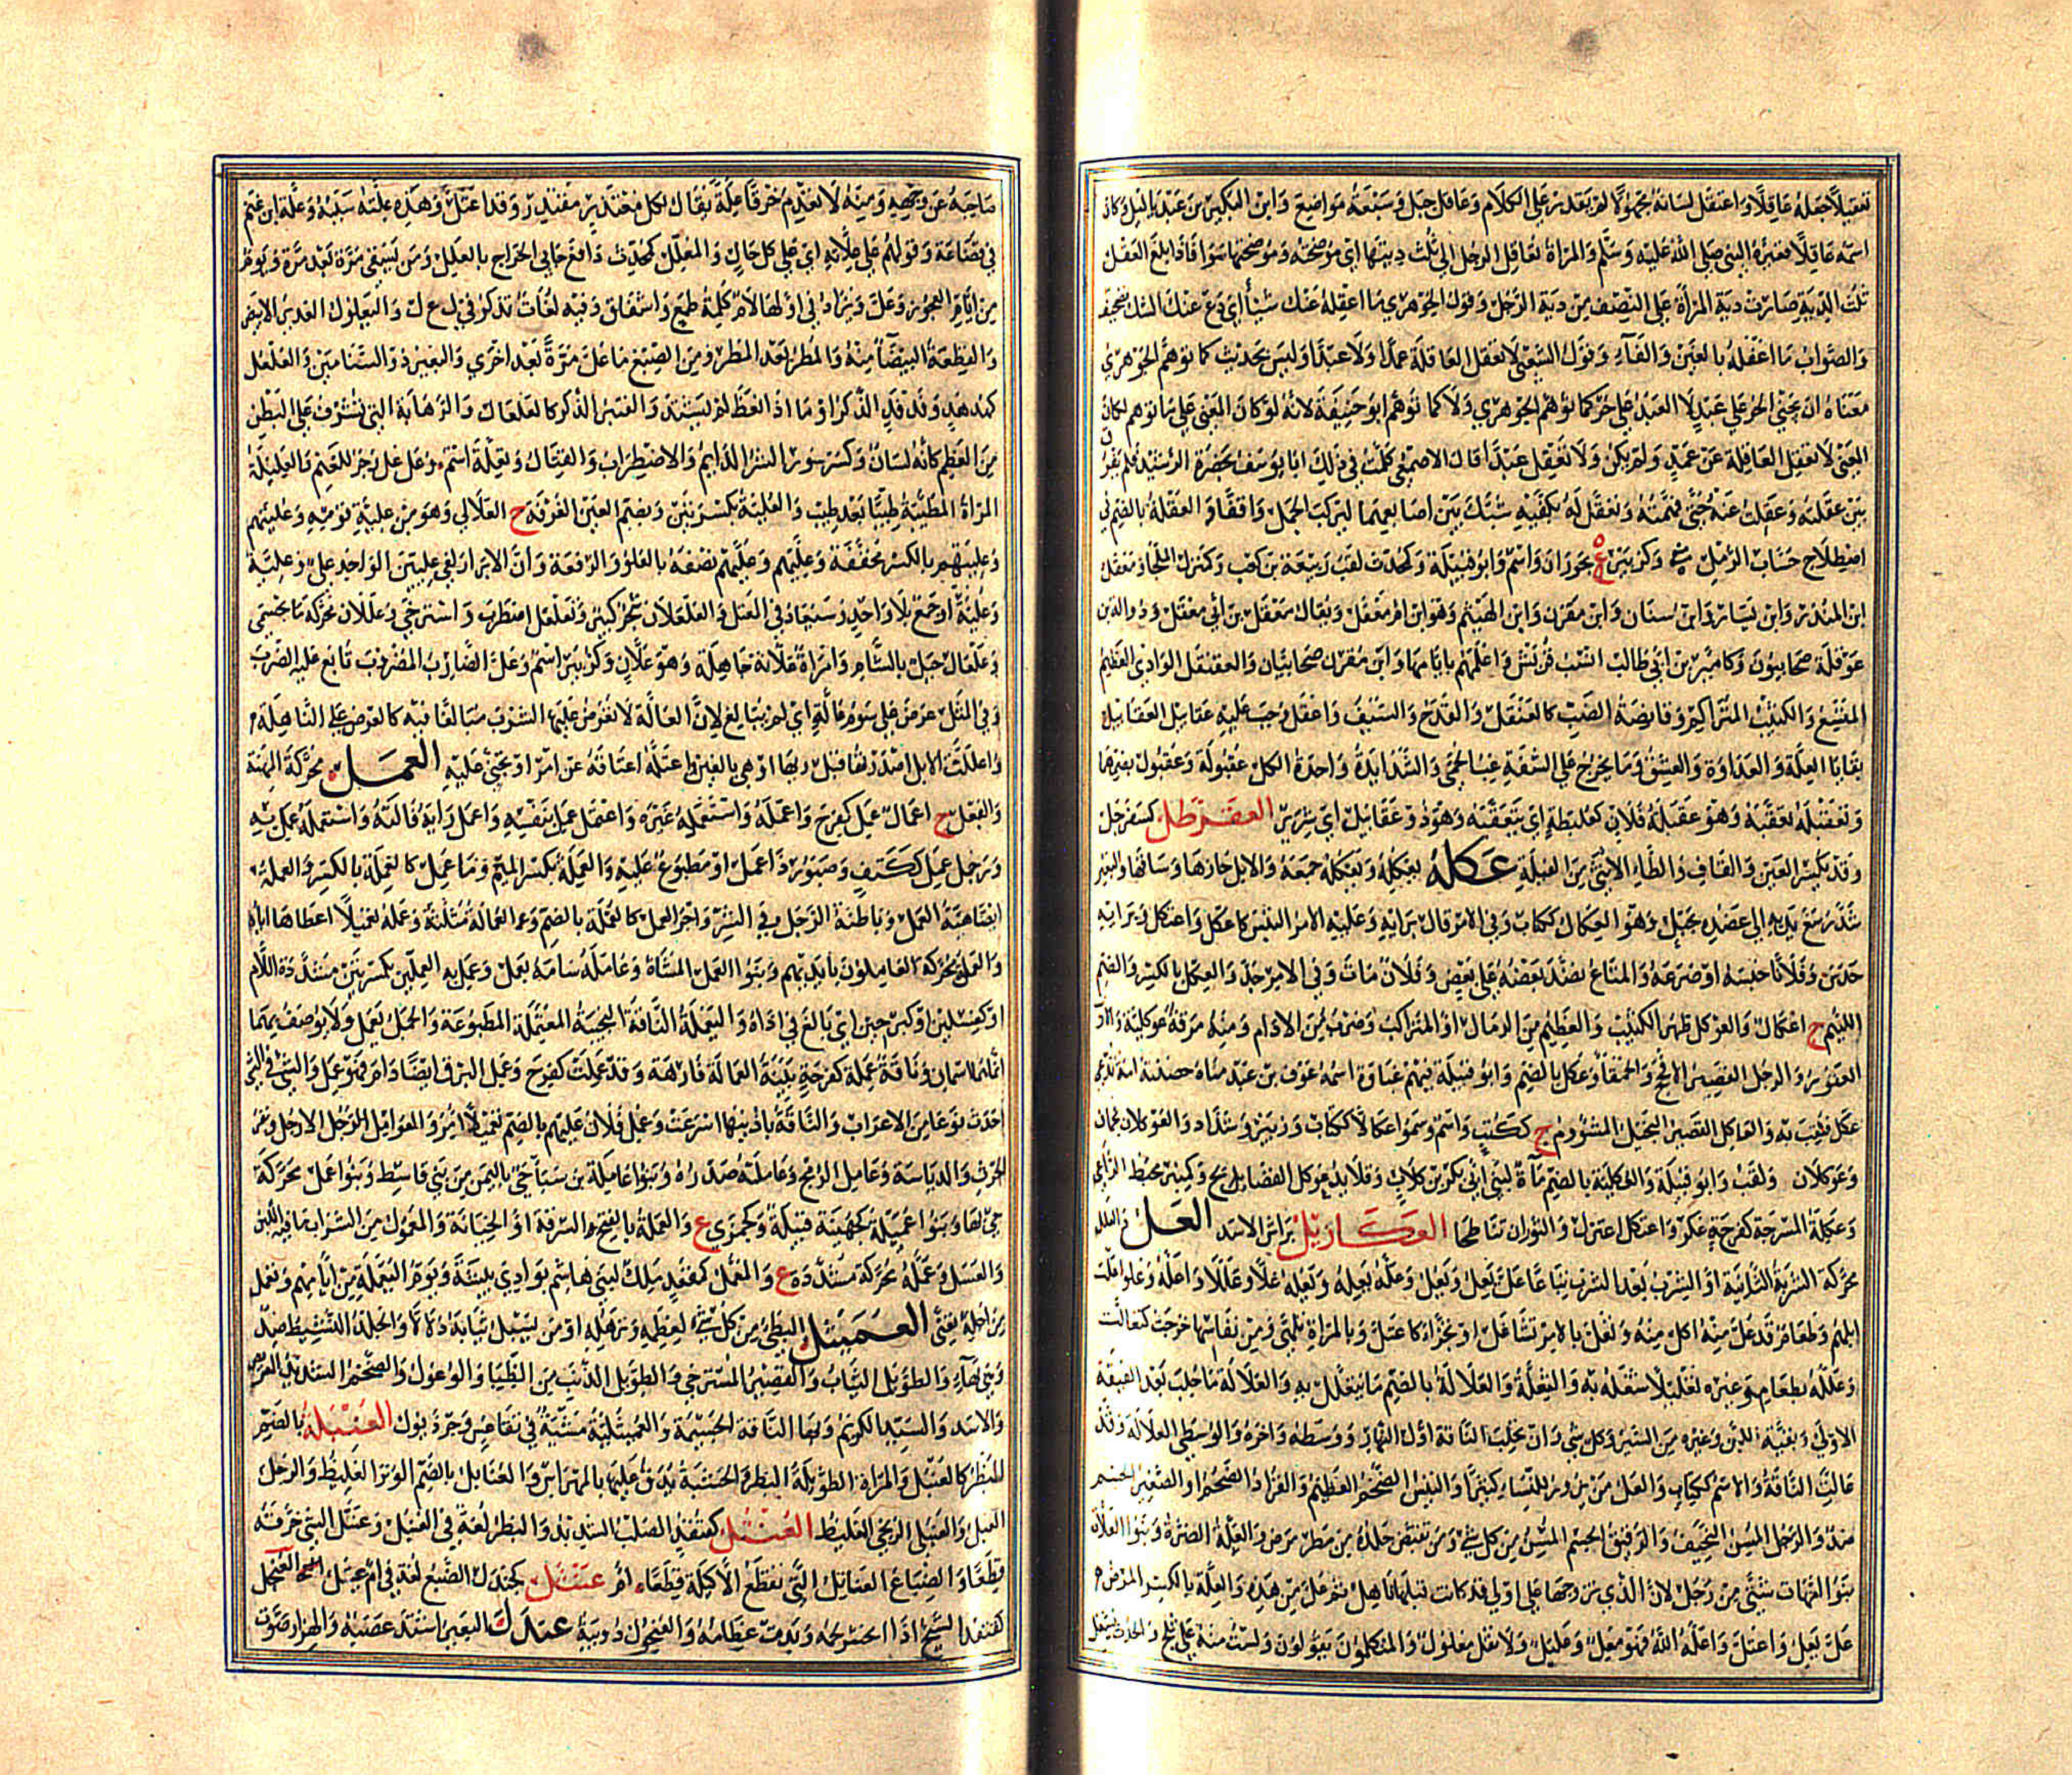 تعقيلاً جعله عاقلاً واعتقل لسانه مجهولاً لم يقدر على الكلام وعاقل جبل وسبعة مواضع وابن البكير بن عبد ياليل وكان
اسمه غافلاً فغيره النبي صلى الله عليه وسلم والمرأة تعاقل الرجل إلى ثلث ديتها أي موضحته وموضحتها سوا فإذا بلغ العقل
ثلث الدية صارت دية المرأة على النصف من دية الرجل وقول الجوهري ما أعقله عنك شيئا أي دع عنك الشك تصحيف
والصواب ما أغفله بالغين والفاء وقول الشعبي لا تعقل العاقلة عمدا ولا عبدا وليس بحديث كما توهم الجوهري
معناه ان يجني الحر على عبد لا العبد على حر كما توهم الجوهري ولا كما توهم ابو حنيفة لانه لو كان المعنى على ما توهم لكان
المعنى لا تعقل العاقلة عن عبد ولم يكن ولا تعقل عبدا قال الاصمعي كلمت في ذلك ابا يوسف بحضرة الرشيد فلم يفرق
بين عقلته وعقلت عنه حتى فهمته وتعقل له بكفيه شبك بين اصابعهما ليركب الجمل واقفا والعقلة بالضم في
اصطلاح حساب الرمل وكزبير ة ع بحوران واسم وابو قبيلة وكمحدث لقب ربيعة بن كعب وكمنزل الملجأ ومعقل
ابن المنذر وابن يسار وابن سنان وابن مقرن وابن الهيثم وهو ابن ام معقل ويقال معقل بن ابي معقل وذؤالة بن
عوقلة صحابيون وكامير بن ابي طالب انسب قريش واعلمهم بايامها وابن مقرن صحابيان والعقنقل الوادي العظيم
المتسع والكثيب المتراكم وقانصة الضب كالعنقل والقدح والسيف واعقل وجب عليه عقال العقابيل
بقايا العلة والعداوة والعشق وما يخرج على الشفة غب الحمى والشدايد واحدة الكل عقبولة وعقبول بضمهما
وتعقبله تعقبه وهو عقبلة فلان كعلبطة أي يتعقبه وهو ذو عقابيل أي شرير العقرطل كسفرجل
وقد تكسر العين والقاف والطاء الانثى من الفيلة عكله يعكله ويعكله جمعه والابل حازها وساقها والبعير
شد رسغ يديه إلى عضده بحبل وهو العكال ككتاب وفي الامر قال برايه وعليه الامر التبس كاعكل واعتكل وبرايه
حدس وفلانا حبسه او صرعه والمتاع نضد بعضه على بعض وفلان مات وفي الامر جد والعكل بالكسر والضم
اللئيم ج اعكال والعوكل ظهر الكثيب والعظيم من الرمال او المتراكب وضرب من الادام ومنه مرقة عوكلية
القصير والرجل القصير الافحج والحمقا وعكل بالضم وابو قبيلة فيهم غباوة اسمه عوف بن عبد مناة حضنته امة تدعى
عكل فلقب به والعاكل القصير البخيل المشؤوم ج ككتب واسم وسموا عكالا ككتاب وزبير وشداد والعوكلان نجمان
وعوكلان ولقب وابو قبيلة والعكلية بالضم ماءة لبني ابي بكر بن كلاب
وعكلة المسرجة كفرجة عكر واعتكل اعتزل والثوران تناطحا العكاريل براثن الاسد العل والعلل
محركة الشربة الثانية او الشرب بعد الشرب تباعا عل يعل ويعل وعله يعله ويعله علا وعللا واعله وعلوا علت
ابلهم وطعام قد عل منه اكل منه وتعلل بالامر تشاغل او تجزأ كاعتل وبالمرأة تلهى ومن نفاسها خرجت كتعالت
وعلله بطعام وغيره تعليلا شغله به والتعلة والعلالة بالضم ما يتعلل به والعلالة ما حلب بعد الفيقة
الاولى وبقية اللبن وغيره من السير وكل شي وان تحلب الناقة اول النهار ووسطه واخره والوسطى العلالة وقد
عالت الناقة والاسم ككتاب والعل من يزور النساء كثيرا والتيس الضخم العظيم والقراد الضخم او الصغير الجسم
ضد والرجل المسن النحيف والرقيق الجسم المسن من كل شي ومن تقبض جلده من مرض والعلة الضرة وبنو العلات
بنو امهات شتى من رجل لان الذي تزوجها على اولى قد كانت قبلها ناهل ثم عل من هذه والعلة بالكسر المرض
عل يعل واعتل واعله الله فهو معل وعليل ولا تقل معلول والمتكلمون يقولون ولست منه على ثلج والحدث يشغل
صاحبه عن وجهه ومنه لا تعدم خرقا علة يقال لكل معتذر مقتدر وقد اعتل وهذه علته سببه وعلة ابن غنم
في قضاعة وقولهم على علاته أي على كل حال والمعلل كمحدث دافع جابي الخراج بالعلل ومن يسقي مرة بعد مرة ويوم
من ايام العجوز وعل ويزاد في اولها لام كلمة طمع واشفاق وفيه لغات تذكر في ل ع ل واليعلول الغدير الابيض
والقطعة البيضا منه والمطر بعد المطر ومن الصبغ ما عل مرة بعد اخرى والبعير ذو السنامين والعلعل
كهدهد وفدفد الذكر او ما اذا انعظ لم يشتد والقنبر الذكر كالعلعال والرهابة التي تشرف على البطن
من العظم كانه لسان وكسرسور الشر الدايم والاضطراب والقتال وتعلة اسم وعل عل زجر للغنم والعليلة
المرأة المطيبة طيبا بعد طيب والعلية بكسرتين وبضم العين الغرفة ج العلالي وهو من علية قومه وعليتهم
وعليهم بالكسر مخففة وعليهم وعليهم نصفه بالعلو والرفعة وان الابرار لفي عليين الواحد علي وعلية
وعلية او جمع بلا واحد وسيعاد في المعتل والعلعلان شجر كبير وتعلعل اضطرب واسترخى وعللان محركة ماء بحسمى
وعلعال جبل بالشام وامرأة علانة جاهلة وهو علان وكزبير اسم وعل الضارب المضروب تابع عليه الضرب
وفي المثل عرض علي سوم عالة أي لم يبالغ لان العالة لا يعرض عليها الشرب مبالغا فيه كالعرض على الناهلة
واعللت الابل اصدرتها قبل ريها او هي بالغين واعتله اعتاقه عن امر او تجنى عليه العمل محركة المهنة
والفعل ج اعمال عمل كفرح واعمله واستعمله غيره واعتمل عمل بنفسه واعمل رايه وآلته واستعمله عمل به
ورجل عمل ككتف وصبور ذو عمل او مطبوع عليه والعملة بكسر الميم وما عمل كالعملة بالكسر والعملة
ايضا هيئة العمل وباطنة الرجل في الشر واجر العمل كالعملة بالضم والعمالة مثلثة وعمله تعميلا اعطاها اياه
والعملة محركة العاملون بايديهم وبنو العمل المشاة وعامله سامه بعمل وعمل به العملين بكسرتين مشددة اللام
او كغسلين او كبرحين أي بالغ في اذاه واليعملة الناقة النجيبة المعتملة المطبوعة والجمل يعمل ولا يوصف بهما
انما اسمان وناقة عملة كفرحة بينة العمالة فارهة وقد عملت كفرح وعمل البرق ايضا دام فهو عمل والشي في الشي
احدث نوعا من الاعراب والناقة باذنيها اسرعت وعمل فلان عليهم بالضم تعميلا امر والعوامل الارجل وبقر
الحرث والدياسة وعامل الرمح وعاملته صدره وبنو عاملة بن سبا حي باليمن من بني قاسط وبنو عمل محركة
حي لها وبنو عميلة كجهينة قبيلة وكجمزى ع والعملة بالفتح السرقة او الخيانة والمعمول من الشراب ما فيه اللبن
والعسل وعملة محركة مشددة ع والمعمل كمقعد ملك لبني هاشم بوادي بيشة ويوم اليعملة من ايامهم وتعمل
من اجله تعنى العميثل البطي من كل شي لعظمه وترهله او من يسبل ثيابه دلالا والجلد النشيط ضد
وبها والطويل الثياب والقصير المسترخي والطويل الذنب من الظبا والوعول والضخم الشديد العريض
والاسد والسيد الكريم وبها الناقة الجسيمة والعميثلية مشية في تقاعس وجر ذيول العنبلة بالضم
البظر كالعنبل والمرأة الطويلة البظر والخشبة يدق عليها بالمهراس والعنابل بالضم الوتر الغليظ والرجل
العبل والعنبلي الزنجي الغليظ العنتل كقنفذ الصلب الشديد والبظر لغة في العنبل وعنتل الشي خرقه
قطعا والضباع العناتل التي تقطع الاكيلة قطعا ام عنثل كجندل الضبع لغة في ام عثيل العنجل
كقنفذ الشيخ اذا انحسر لحمه وبدت عظامه والعنجول دويبة عندل البعير اشتد عصبه والهزار صوت